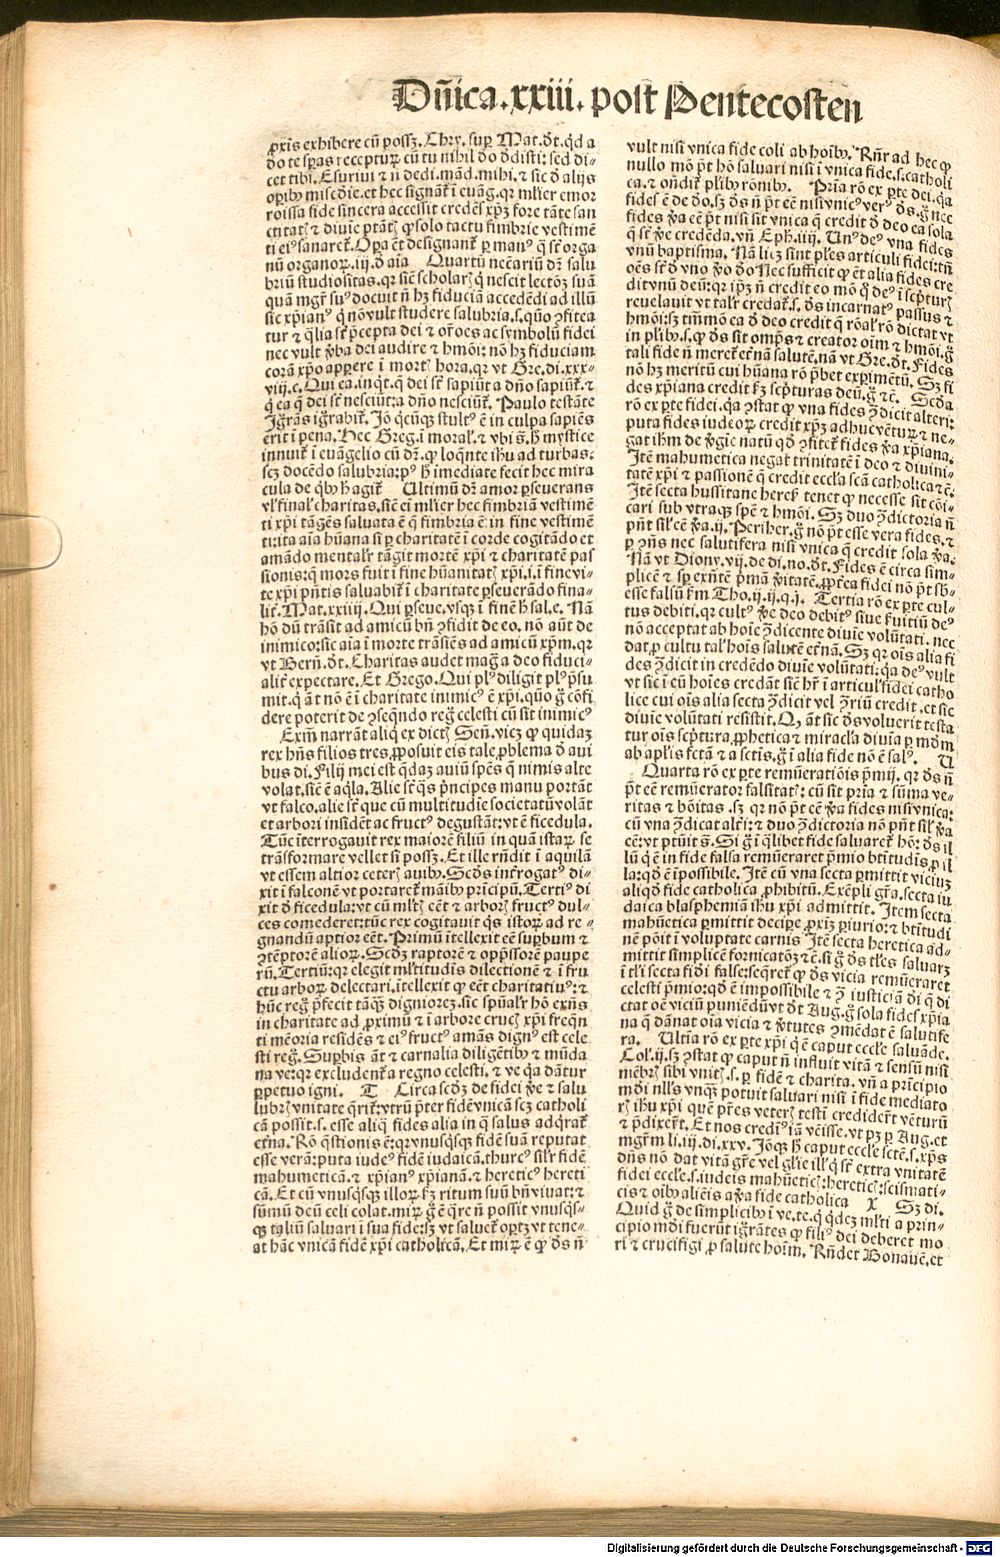 Dn̄ica.xxiii.post Pentecosten
ꝓxis exhibere cū possꝫ. Chry. suꝑ Mat. d̄t. qd̄ a
do te sꝑas recepturꝰ cū tu nihil do dedisti: sed di-
cet tibi. Esuriui ⁊ nō dedi. mād. mihi. ⁊ sic de alijs
oꝑibꝰ miscd̄ie. et hec signāt̄ ī euāg. qꝛ ml̄ier emor
roissa fide sincera accessit credēs xp̄ꝫ fore tāte san
titi eiꝰ sanaret̄. Oꝑa ēt designant̄ ꝑ manꝰ q̄ st̄ orga
nū organoꝝ. iij. de aīa Quartū nec̄ariū d̄r salu
briū studiositas. qꝛ sic̄ scholarꝭ q̄ nescit lectōꝫ suā
quā mgr̄ suꝰ docuit nō hꝫ fiduciā accedēdi ad illū
sic xp̄ianꝰ q̄ nō vult studere salubria. s. quo ꝯfitea
tur ⁊ q̄lia st̄ p̄cepta dei ⁊ or̄oes ac symbolū fidei
nec vult v̄ba dei audire ⁊ hmōi: nō hꝫ fiduciam
corā xp̄o apꝑere ī mort̄ hora. qꝛ vt Gre. di. xxx-
viij. c. Qui ea. inq̄t. q̄ dei st̄ sapiūt a dn̄o sapiūt̄. ⁊
q̄ ea q̄ dei st̄ nesciūt: a dn̄o nesciūt̄. Paulo testāte
Ignorās ignorabit̄. Jō q̄cūqꝫ stultꝰ ē in culpa sapiēs
erit ī pena. Hec Greg. ī moral̄. ⁊ vbi s̄. h̄ mystice
innuit̄ ī euāgelio cū d̄r. ꝙ loq̄nte ih̄u ad turbas:
scꝫ docēdo salubria: pꝰ h̄ imediate fecit hec mira
cula de qͥbꝰ h̄ agit̄ Ultimū d̄r amor ꝑseuerans
vl̄ final̄ charitas. sic̄ ei ml̄ier hec fimbriā vestimē
ti xp̄i tāgēs saluata ē q̄ fimbria ē in fine vestimē
ti: ita aīa hūana si ꝑ charitatē ī corde cogitādo et
amādo mental̄r tāgit mortē xp̄i ⁊ charitatē pas
sionis: q̄ mors fuit ī fine hūanitatꝭ xp̄i. i. ī fine vi-
te xp̄i pn̄tis saluabit̄ ī charitate ꝑseuerādo fina-
lit̄. Mat. xxiiij. Qui ꝑseue. vsqꝫ ī finē h̄ sal. e. Nā
hō dū trāsit ad amicū bn̄ ꝯfidit de eo. nō aūt de
inimico: sic aīa ī morte trāsiēs ad amicū xp̄m. qꝛ
vt Bern̄. d̄t. Charitas audet magna a deo fiduci-
alit̄ expectare. Et Grego. Qui plꝰ diligit plꝰ p̄su
mit. q̄ āt nō ē ī charitate inimicꝰ ē xp̄i. quo g̊ cōfi
dere poterit de ꝯseq̄ndo regno celesti cū sit inimicꝰ
Exm̄ narrāt aliqͥ ex dictꝭ Sen̄. vicꝫ ꝙ quidaꝫ
rex hn̄s filios tres, ꝓposuit eis tale ꝓblema de aui
bus di. Filij mei est q̄daꝫ auiū spēs q̄ nimis alte
volat. sic̄ ē aq̄la. Alie st̄ q̄s p̄ncipes manu portāt
vt falco. alie st̄ que cū multitudīe societatū volāt
et arbori insidēt ac fructꝰ degustāt: vt ē ficedula.
Tūc īterrogauit rex maiorē filiū in quā istaꝝ se
trāsformare vellet si possꝫ. Et ille rn̄dit ī aquilā
vt essem altior ceterꝭ auibꝰ. Scd̄s int̄rogatꝰ di-
xit ī falconē vt portaret̄ māibꝰ pricipū. Tertiꝰ di
xit de ficedula: vt cū mlt̄ꝭ eēt ⁊ arborꝭ fructꝰ dul-
ces comederet: tūc rex cogitauit q̄s istoꝝ ad re-
gnandū aptior eēt. Primū ītellexit eē suꝑbum ⁊
ꝯtēptorē alioꝝ. Scd̄ꝫ raptorē ⁊ opp̄ssorē paupe
rū. Tertiū: qꝛ elegit ml̄titudīs dilectionē ⁊ ī fru
ctu arboꝝ delectari, ītellexit ꝙ eēt charitatiuꝰ: ⁊
hūc regno p̄fecit tāqꝫ digniorez. sic spūal̄r hō exn̄s
in charitate ad ꝓximū ⁊ ī arbore crucꝭ xp̄i freq̄n
ti mēoria residēs ⁊ eiꝰ fructꝰ amās dignꝰ est cele
sti regno. Suꝑbis āt ⁊ carnalia diligētibꝰ ⁊ mūda
na ve: qꝛ excludent̄ a regno celesti. ⁊ ve qꝛ dātur
ꝑpetuo igni. T Circa scd̄ꝫ de fidei v̄e ⁊ salu
lubrꝭ vnitate q̄rit̄: vtrū p̄ter fidē vnicā scꝫ catholi
cā possīt. s. esse aliq̄ fides alia in q̄ salus adq̄rat̄
et̄na. Rō q̄stionis ē: qꝛ vnusqͥsqꝫ fidē suā reputat
esse verā: puta iudeꝰ fidē iudaicā. thurcꝰ sil̄r fidē
mahumeticā. ⁊ xp̄ianꝰ xp̄ianā. ⁊ hereticꝰ hereti
cā. Et cū vnusqͥsqꝫ illoꝝ ẜm ritum suū bn̄ viuat: ⁊
sūmū deū celi colat. miꝝ g̊ ē q̄re nō possit vnusqͥs-
qꝫ taliū saluari ī sua fide: sꝫ vt saluet̄ oꝑtꝫ vt tene-
at hāc vnicā fidē xp̄i catholicā. Et miꝝ ē ꝙ ds̄ nō
vult nisi vnica fide coli ab hoībꝰ. Rn̄r ad hec ꝙ
nullo mō pōt hō saluari nisi ī vnica fide. s. catholi
ca. ⁊ on̄dit̄ pl̄ibꝰ rōnibꝰ. Pria rō ex ꝑte dei. qꝛ
fides ē de deo. sꝫ ds̄ nō pōt eē nisi vnicꝰ verꝰ ds̄. g̊ nec
fides v̄a eē pōt nisi sit vnica q̄ credit de deo ea sola
q̄ st̄ v̄e credēda. vn̄ Eph. iiij. Unꝰ deꝰ vna fides
vnū baptisma. Nā licꝫ sint pl̄es articuli fidei: tn̄
oēs st̄ de vno v̄o deo Nec sufficit ꝙ ēt alia fides cre
dit vnū deū: qꝛ ip̄ꝫ nō credit eo mō q̄ deꝰ ī sc̄pturꝭ
reuelauit vt tal̄r credat̄. s. ds̄ incarnatꝰ passus ⁊
hmōi: sꝫ tm̄mō ea de deo credit q̄ rōal̄ rō dictat vt
in pl̄ibꝰ. s. ꝙ ds̄ sit omp̄s ⁊ creator oīm ⁊ hmōi. g̊
tali fide nō meret̄ et̄nā salutē. nā vt Gre. d̄t. Fides
nō hꝫ meritū cui hūana rō p̄bet exꝑimētū. Sꝫ fi
des xp̄iana credit ẜm sc̄pturas deū. g̊ ⁊c. Scd̄a
rō ex ꝑte fidei. qꝛ ꝯstat ꝙ vna fides ꝯdicit alteri:
puta fides iudeoꝝ credit xp̄ꝫ adhuc vēturū ⁊ ne-
gat ih̄m de v̄gīe natū qd̄ ꝯfitet̄ fides v̄a xp̄iana.
Itē mahumetica negat trinitatē ī deo ⁊ diuini-
tatē xp̄i ⁊ passionē q̄ credit eccl̄a scā catholica ⁊c.
Itē secta hussitane heresꝭ tenet ꝙ necesse sit cōi-
cari sub vtraqꝫ spē ⁊ hmōi. Sꝫ duo ꝯdictoria nō
pn̄t sil̄ eē v̄a. ij. Periher. g̊ nō pōt esse vera fides. ⁊
ꝑ ꝯn̄s nec salutifera nisi vnica q̄ credit sola v̄a.
Nā vt Diony. vij. de di. no. d̄t. Fides ē circa sim-
plicē ⁊ sꝑ exn̄tē p̄mā v̄itatē. ꝓpt̄ea fidei nō pōt sb̄-
esse falsū ẜm Tho. ij. ij. q. j. Tertia rō ex ꝑte cul-
tus debiti. qꝛ cultꝰ v̄e deo debitꝰ siue ẜuitiū deꝰ
nō acceptat ab hoīe ꝯdicente diuīe volūtati. nec
dat. ꝓ cultu tal̄ hoīs salutē et̄nā. Sꝫ qꝛ oīs alia fi
des ꝯdicit in credēdo diuīe volūtati: qꝛ deꝰ vult
vt sic ī eū hoīes credāt sic̄ hr̄ ī articul̄ fidei catho
lice cui oīs alia secta ꝯdicit vel ꝯriū credit. et sic
diuīe volūtati resistit. Qꝙ āt sic ds̄ voluerit testa
tur oīs sc̄ptura, ꝓphetica ⁊ miracl̄a diuīa ꝑ mdm̄
ab apl̄is fctā ⁊ a sctis. g̊ ī alia fide nō ē salꝰ. U
Quarta rō ex ꝑte remūeratiōis p̄mij. qꝛ ds̄ nō
pōt eē remūerator falsitatꝭ: cū sit pria ⁊ sūma ve-
ritas ⁊ bōitas. sꝫ qꝛ nō pōt eē v̄a fides nisi vnica:
cū vna ꝯdicat alt̄i: ⁊ duo ꝯdictoria nō pn̄t sil̄ v̄a
eē: vt ptꝫ s̄. Si g̊ ī qͥlibet fide saluaret̄ hō: ds̄ il
lū q̄ ē in fide falsa remūeraret p̄mio btītudīs ꝓ il
la: qd̄ ē īpossibile. Itē cū vna secta ꝑmittit viciuꝫ
aliqd̄ fide catholica ꝓhibitū. Exēpli grā. secta iu
daica blasphemiā ih̄u xp̄i admittit. Item secta
mahūetica ꝑmittit decipe ꝓxiꝫ ꝑiurio: ⁊ btītudi
nē pōit ī voluptate carnis Itē secta heretica ad-
mittit simplicē fornicatōꝫ ⁊c. si g̊ ds̄ tl̄es saluarꝫ
ī tl̄i secta fidei false: seq̄ret̄ ꝙ ds̄ vicia remūeraret
celesti p̄mio: qd̄ ē impossibile ⁊ ꝯ iusticiā dei q̄ di
ctat oē viciū puniēdū vt d̄t Aug. g̊ sola fides xp̄ia
na q̄ dānat oīa vicia ⁊ v̄tutes ꝯmēdat ē salutife
ra. Ultīa rō ex ꝑte xp̄i q̄ ē caput eccl̄e saluāde.
Col̄. ij. sꝫ ꝯstat ꝙ caput nō influit vitā ⁊ sensū nisi
mēbrꝭ sibi vnitꝭ. s. ꝑ fidē ⁊ charita. vn̄ a prīcipio
mūdi nll̄s vnqꝫ potuit saluari nisi ī fide mediato
rꝭ ih̄u xp̄i quē pr̄es veterꝭ testi credidert̄ vēturū
⁊ p̄dixert̄. Et nos credīꝰ iā vēisse. vt pꝫ ꝑ Aug. et
mgr̄m li. iij. di. xxv. Jōqꝫ h̄ caput eccl̄e sctē. s. xp̄s
dn̄s nō dat vitā gr̄e vel gl̄ie ill̄ q̄ st̄ extra vnitatē
fidei eccl̄e. s. iudeis mahūeticꝭ: hereticꝭ: scismati-
cis ⁊ oībꝰ aliēis a v̄a fide catholica X Sꝫ di.
Quid g̊ de simplicibꝰ ī ve. te. q̄ qͥdez ml̄ti a prin-
cipio mūdi fuerūt ignorātes ꝙ filiꝰ dei deberet mo
ri ⁊ crucifigi ꝓ salute hoīm. Rn̄det Bonauē. et
Digitalisierung gefördert durch die Deutsche Forschungsgemeinschaft - DFG